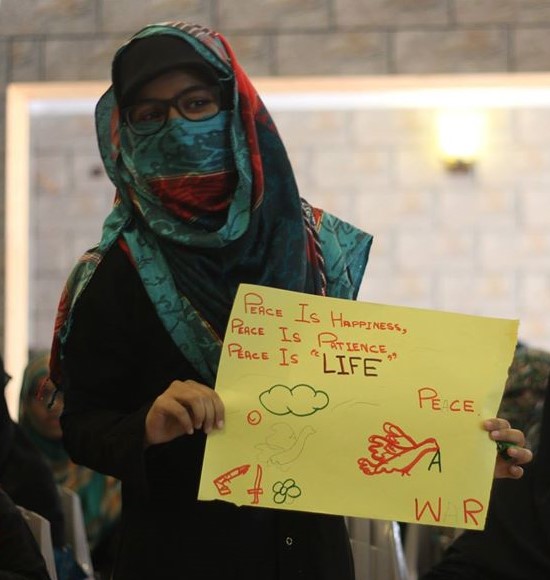 PEACE IS HAPPINESS,
PEACE IS PATIENCE
PEACE IS "LIFE"
PEACE.
A
WAR